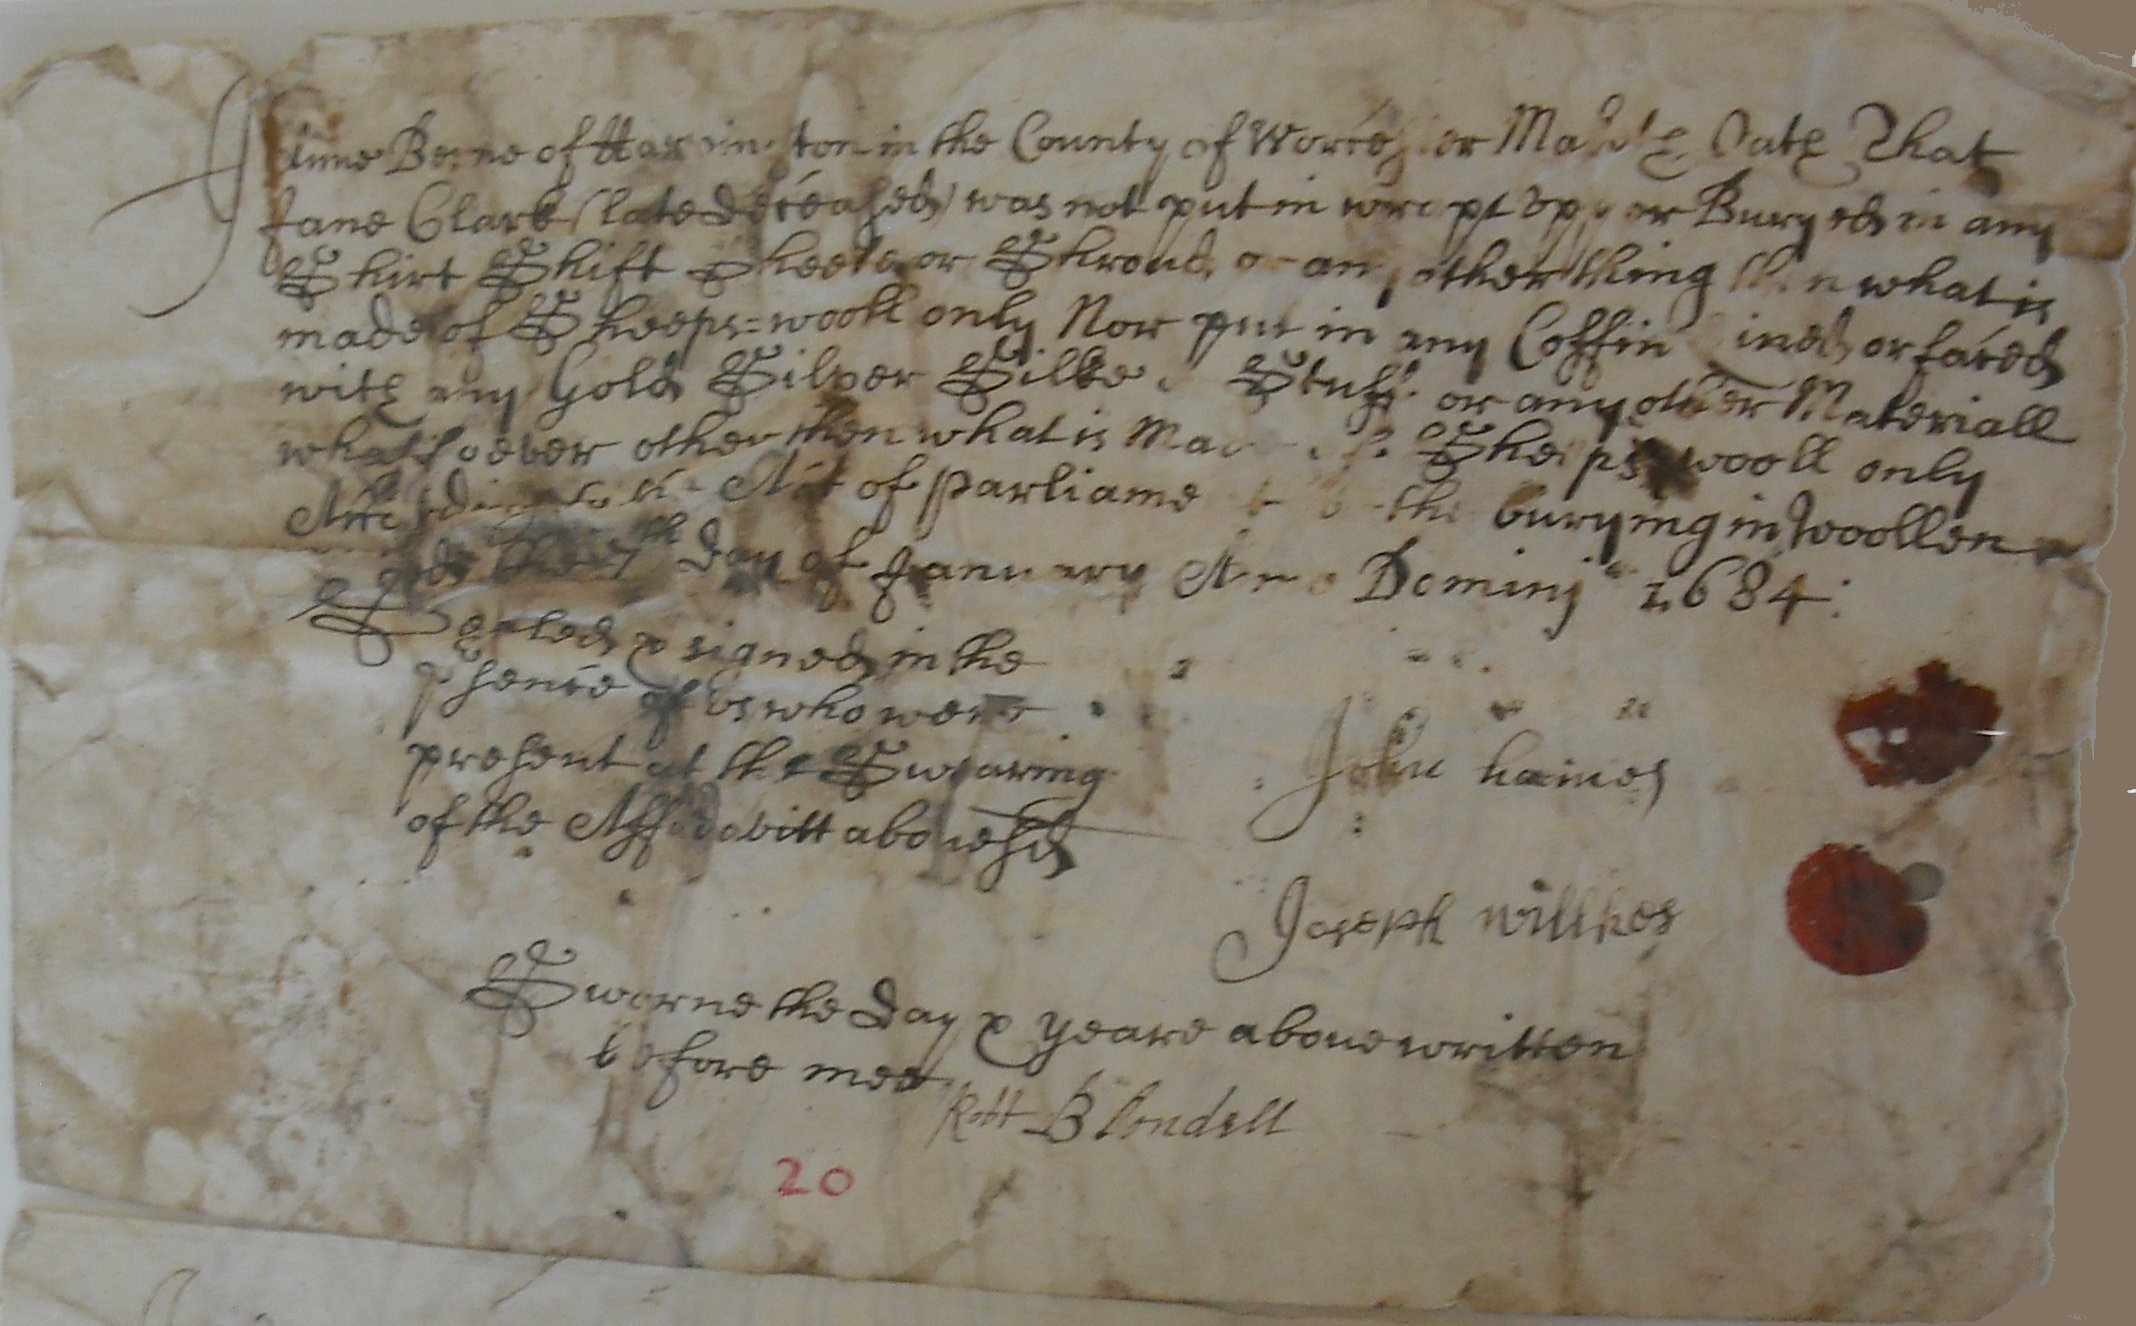 Anne Beene of Harvington in the County of Worcester Maketh Oath That
Jane Clark (late deceased) was not put in wrapt upp or Buryed in any
Shirt Shift Sheete or Shroud or any other thing then what is
made of Sheeps=wooll only Nor put in any Coffin Lined or faced
with any Gold Silver Silke Stuffe or any other Materiall
whatsoever other then what is Made of Sheeps wooll only
According to the Act of Parliament the burying in Woollen
day of January Anno Dominj 1684:
Sealed & signed in the
psence of us who were
present at the Swearing
of the Affadavitt abovesd
John haines
Joseph willkes
Sworne the day & yeare above written
before mee
Robt Blondell
20